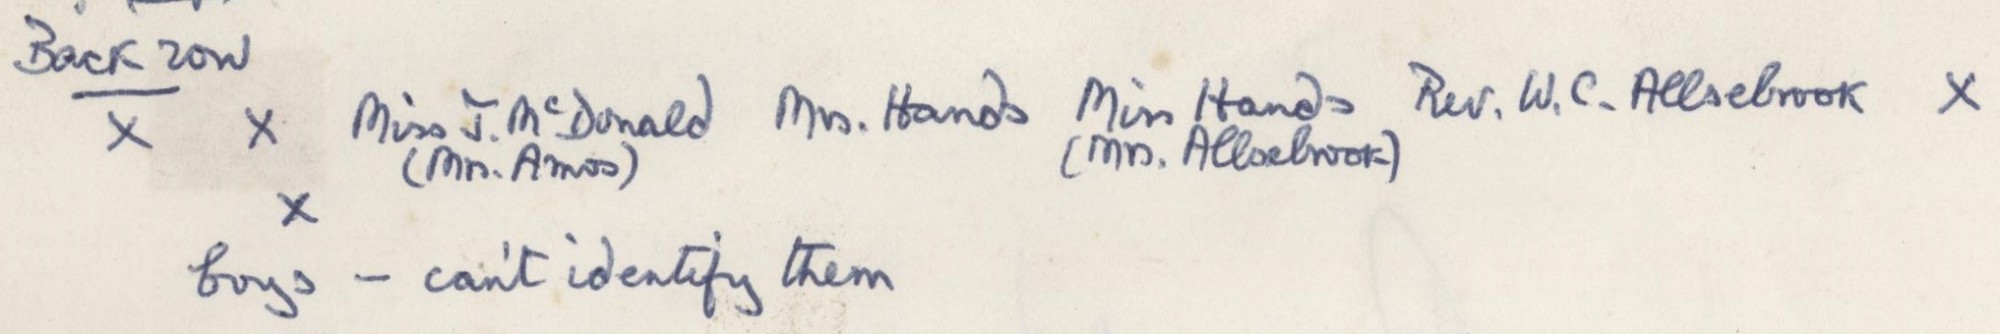 Back row
X X Miss J. McDonald Mrs. Hands Miss Hands Rev. W.C. Allsebrook X
(Mrs. Amos) (Mrs. Allsebrook)
X
boys - can't identify them